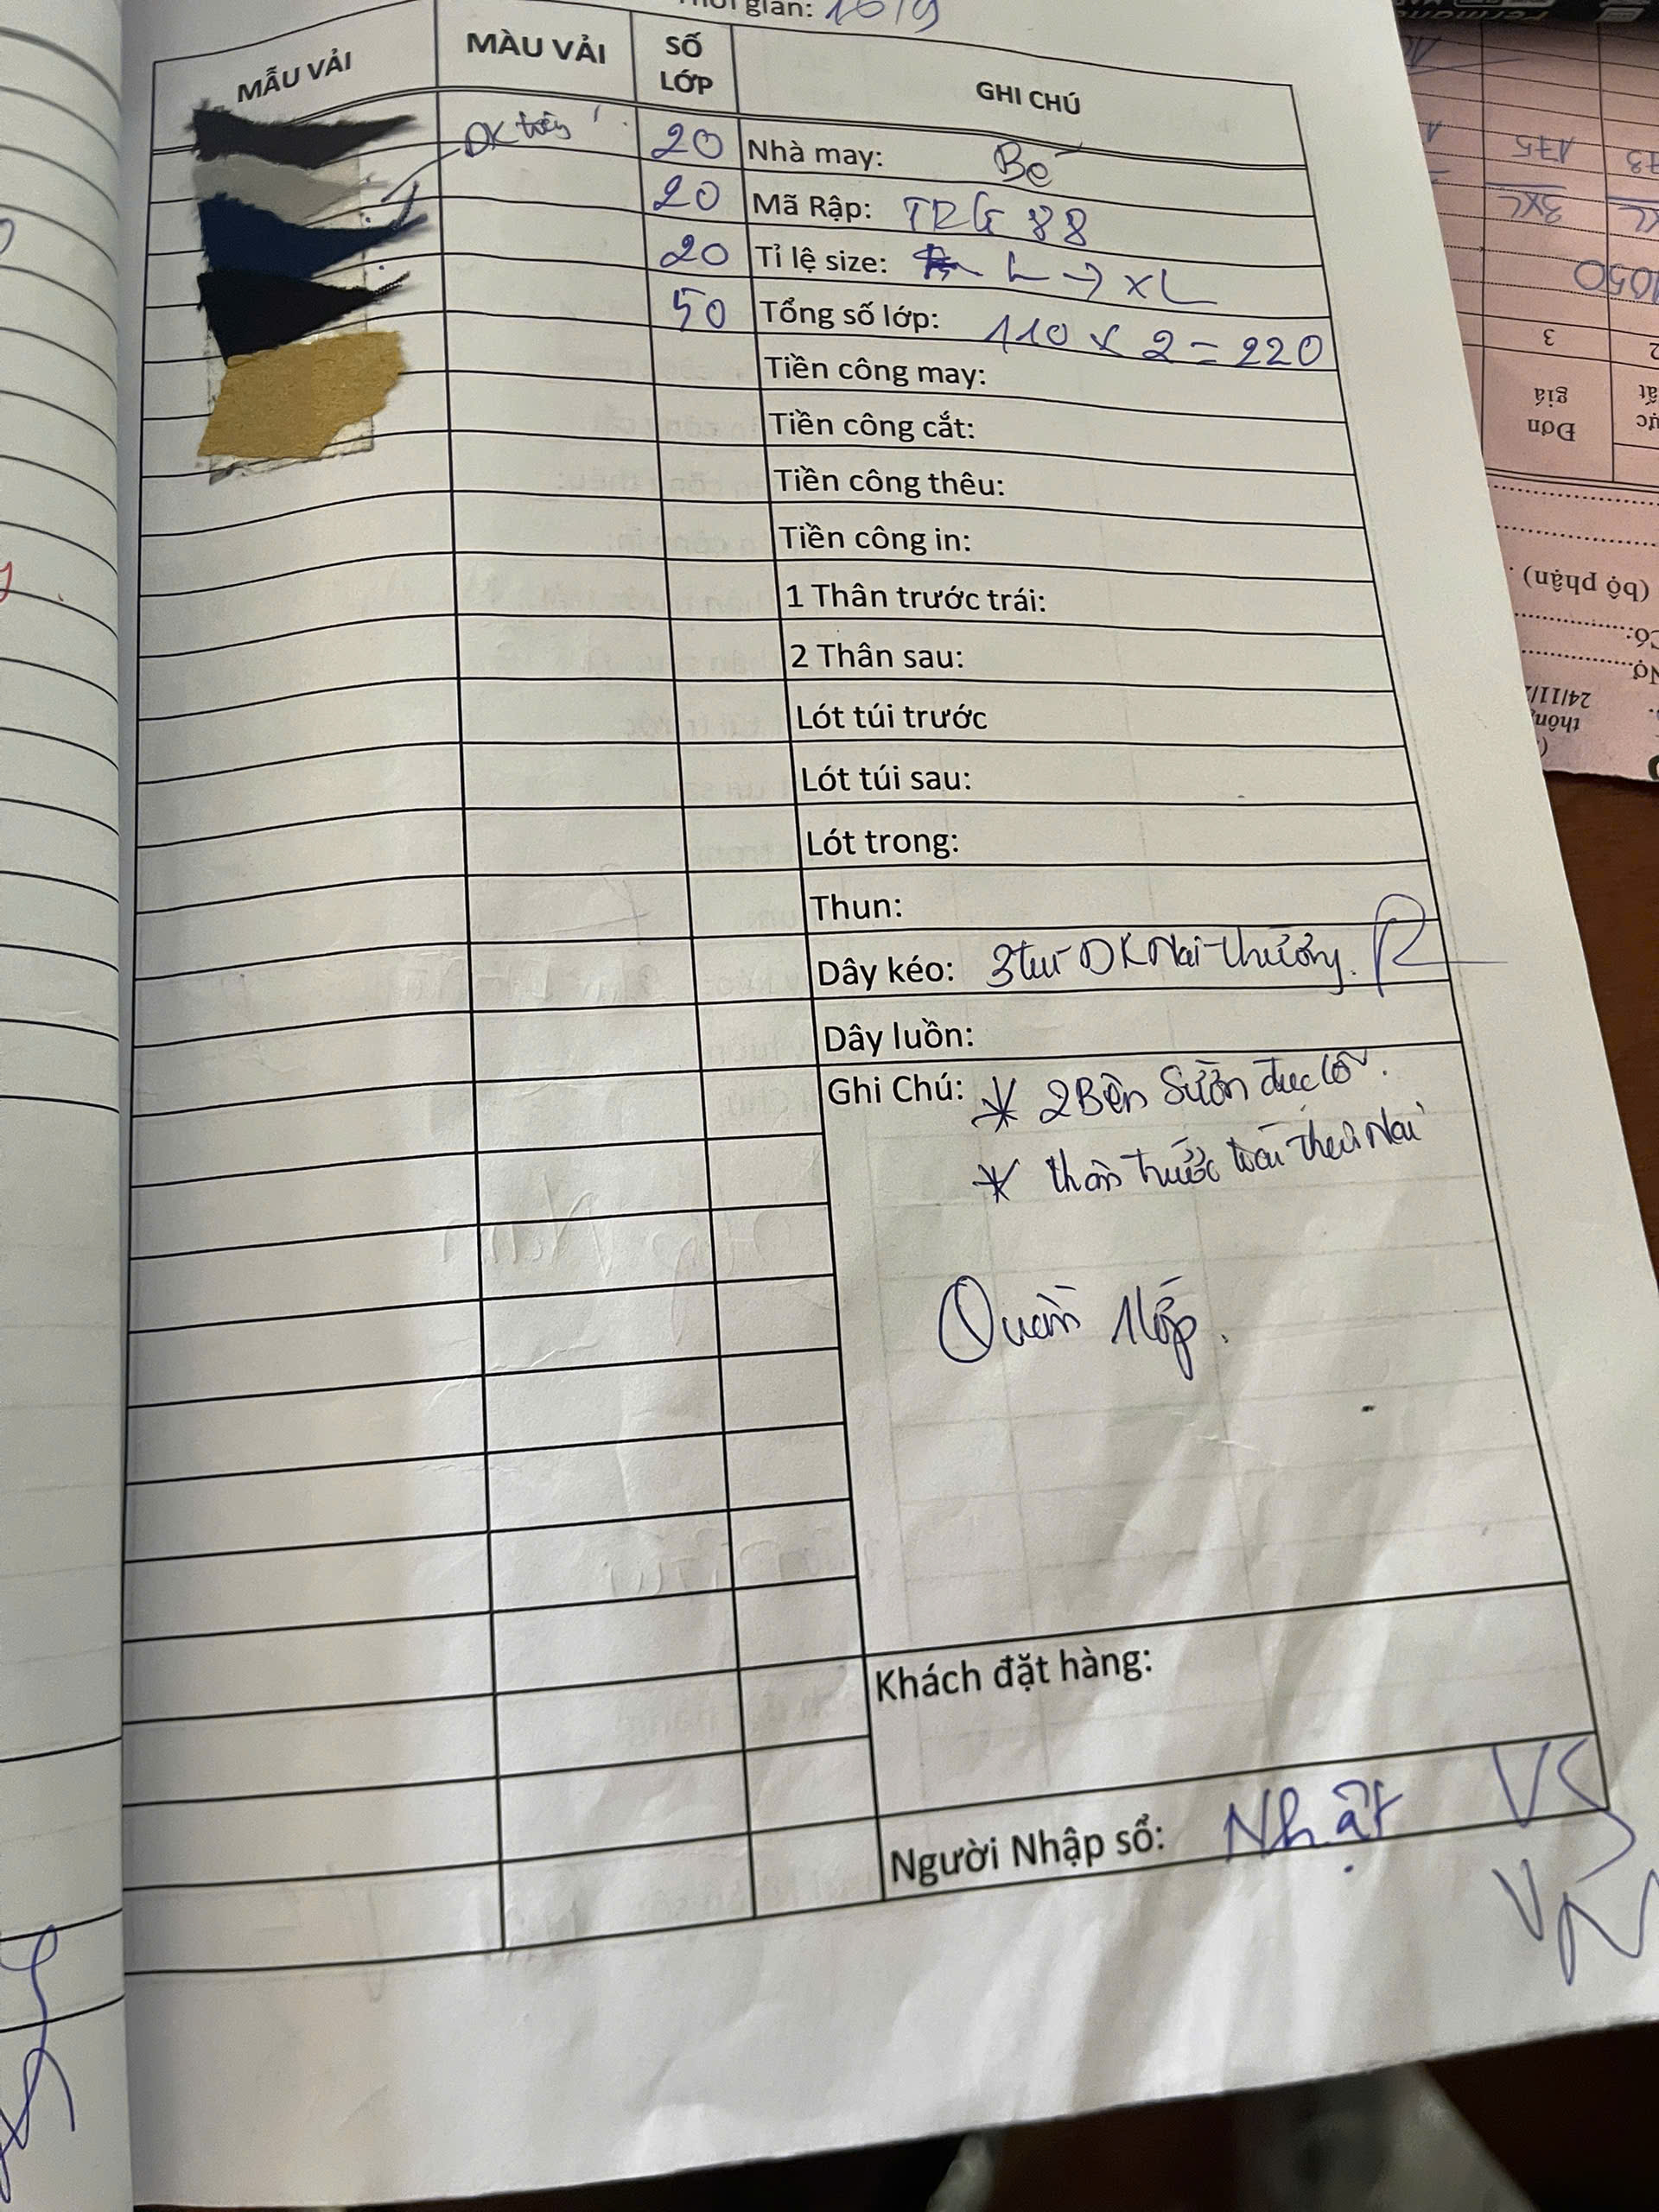 Thời gian: 16/9
MẪU VẢI MÀU VẢI SỐ LỚP GHI CHÚ
DK trắng
20 Nhà may: Bé
20 Mã Rập: TRG 88
20 Tỉ lệ size: L → XL
50 Tổng số lớp: 110 x 2 = 220
Tiền công may:
Tiền công cắt:
Tiền công thêu:
Tiền công in:
1 Thân trước trái:
2 Thân sau:
Lót túi trước
Lót túi sau:
Lót trong:
Thun:
Dây kéo: 3 túi DK Nai thường.
Dây luồn:
Ghi Chú: * 2 Bên Sườn đục lỗ.
* thân trước trái thêu Nai
Quần 1 lớp.
Khách đặt hàng:
Người Nhập sổ: Nhật
175
3XL
1050
3
Đơn
giá
(bộ phận)
24/11/2